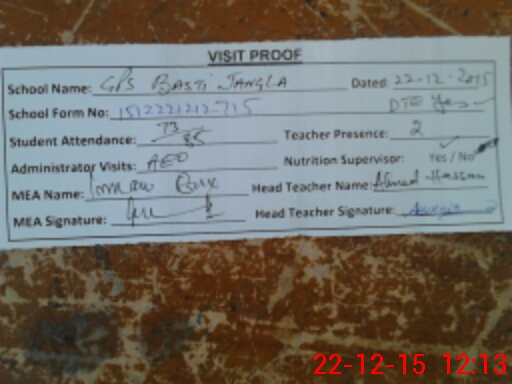 VISIT PROOF
School Name: GPS BASTI JANGLA Dated: 22-12-2015
School Form No: 1512221212-715 DTE Yes
Student Attendance: 73/85 Teacher Presence: 2
Administrator Visits: AEO Nutrition Supervisor: Yes / No
MEA Name: Bux Head Teacher Name: Ahmed Hassan
MEA Signature: Head Teacher Signature:
22-12-15 12:13